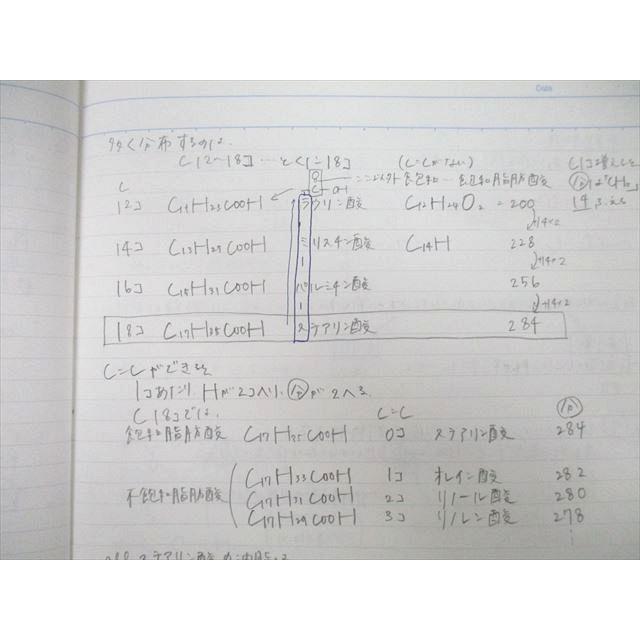 Date
多く分布するのは、
C12〜18コ…とくに18コ (C=Cがない) C1コ増えると
ここ以外飽和…飽和脂肪酸
C
12コ C11H23COOH ラウリン酸 C12H24O2 = 200 14ふえる
+14×2
14コ C13H27COOH ミリスチン酸 C14H 228
+14×2
16コ C15H31COOH パルミチン酸 256
+14×2
18コ C17H35COOH ステアリン酸 284
C=Cができると
1コあたり Hが2コへり、分が2へる
C18コでは、 C=C 分
飽和脂肪酸 C17H35COOH 0コ ステアリン酸 284
不飽和脂肪酸 C17H33COOH 1コ オレイン酸 282
C17H31COOH 2コ リノール酸 280
C17H29COOH 3コ リノレン酸 278
ステアリン酸